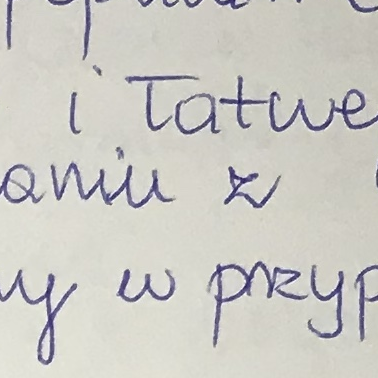 i łatwe
aniu z
ny w przyp